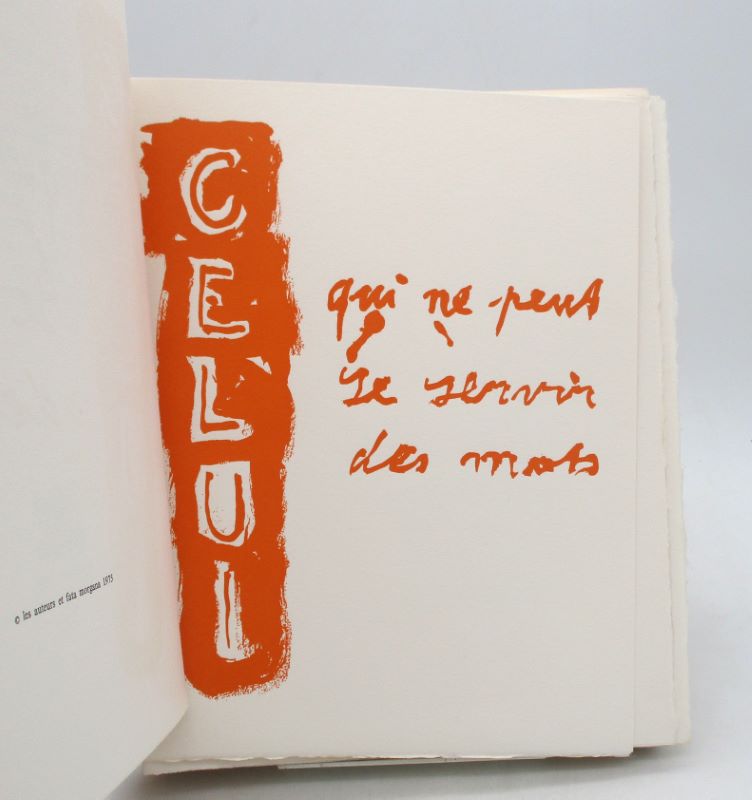 © les auteurs et fata morgana 1975
CELUI
qui ne peut
se servir
des mots